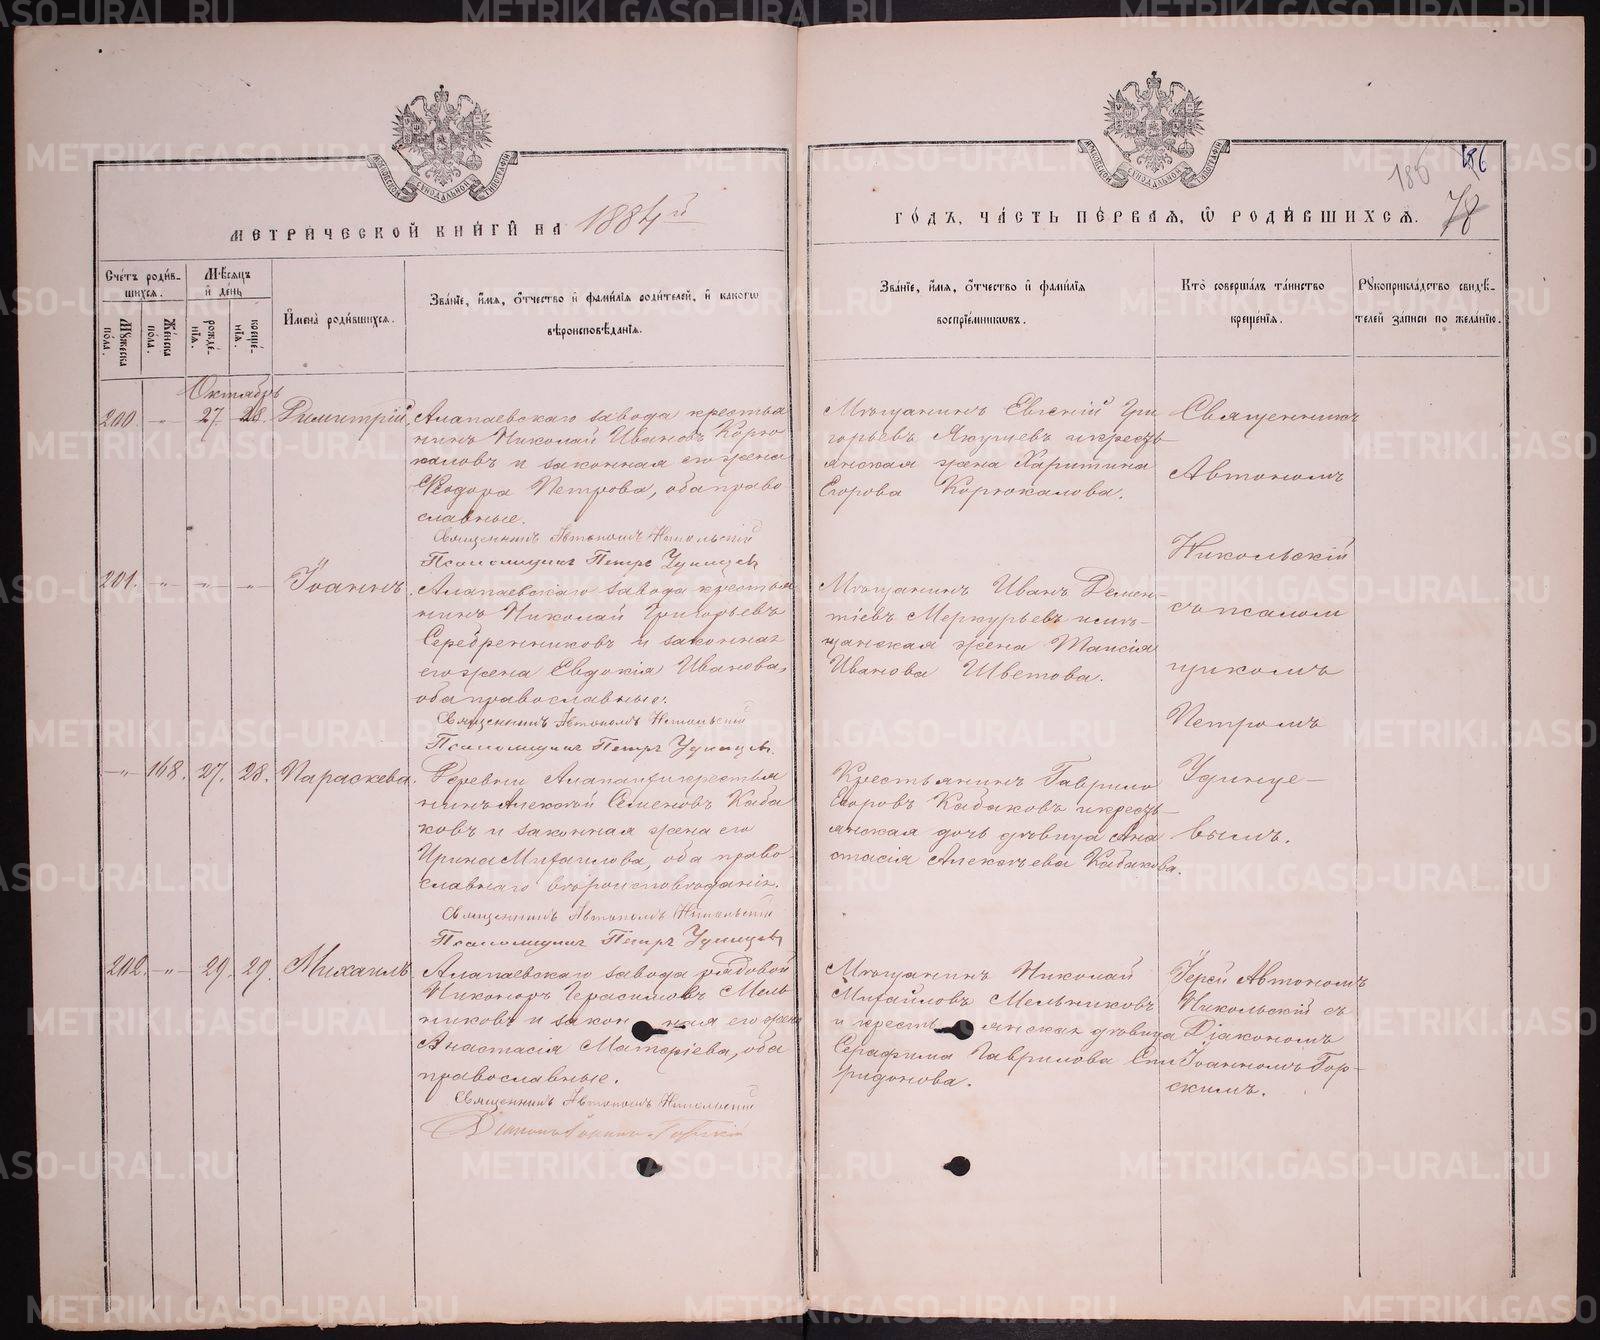 МЕТРИЧЕСКОЙ КНИГИ НА 1884й
ГОДЪ, ЧАСТЬ ПЕРВАЯ, Ѡ РОДИВШИХСЯ.
186
186
78
Счетъ родив-
шихся.
Мѣсяцъ
и день
Мужеска
пола.
Женска
пола.
рожде-
нія.
креще-
нія.
Имена родившихся.
Званіе, имя, отчество и фамилія родителей, и какогѡ
вѣроисповѣданія.
Званіе, имя, отчество и фамилія
воспріемниковъ.
Кто совершалъ таинство
крещенія.
Рукоприкладство свидѣ-
телей записи по желанію.
Октябрь
200. -"- 27. 28. Димитрій
Алапаевскаго завода крестья
нинъ Николай Ивановъ Корю
каловъ и законная его жена
Ѳеодора Петрова, оба право
славные.
Священникъ Автономъ Никольскій
Псаломщикъ Петръ Удинцев
Мѣщанинъ Евгеній Гри
горьевъ Якушевъ и кресть
янская жена Харитина
Егорова Корюкалова.
201. -"- -"- -"- Іоаннъ.
Алапаевскаго завода крестья
нинъ Николай Григорьевъ
Серебренниковъ и законная
его жена Евдокія Иванова,
оба православные.
Священникъ Автономъ Никольскій
Псаломщикъ Петръ Удинцев
Мѣщанинъ Иванъ Демен-
тіевъ Меркурьевъ и мѣ-
щанская жена Таисія
Иванова Швецова.
-"- 168. 27. 28. Параскева.
Деревни Алапаихи крестья
нинъ Алексѣй Семеновъ Каба
ковъ и законная жена его
Ирина Михаилова, оба право-
славнаго вѣроисповѣданія.
Священникъ Автономъ Никольскій
Псаломщикъ Петръ Удинцев
Крестьянинъ Гаврило
Егоровъ Кабаковъ и кресть-
янская дочь дѣвица Ана
стасія Алексѣева Кабакова.
Священникъ
Автономъ
Никольскій
съ псалом
щикомъ
Петромъ
Удинце-
вымъ.
202. -"- 29. 29. Михаилъ
Алапаевскаго завода рядовой
Никоноръ Герасимовъ Мель
никовъ и законная его жена
Анастасія Матѳріева, оба
православные.
Священникъ Автономъ Никольскій
Діаконъ Іоаннъ Горскій
Мѣщанинъ Николай
Михайловъ Мельниковъ
и крестьянская дѣвица
Серафима Гаврилова Спи
ридонова.
Іерей Автономъ
Никольскій съ
Діакономъ
Іоанномъ Гор-
скимъ.